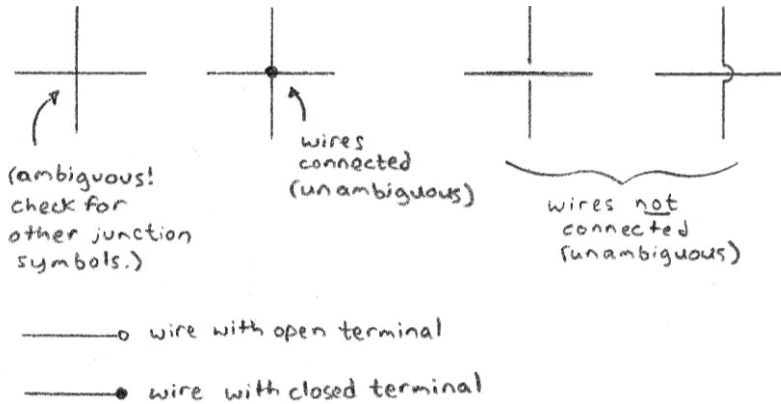 (ambiguous!
check for
other junction
symbols.)
wires
connected
(unambiguous)
wires not
connected
(unambiguous)
wire with open terminal
wire with closed terminal